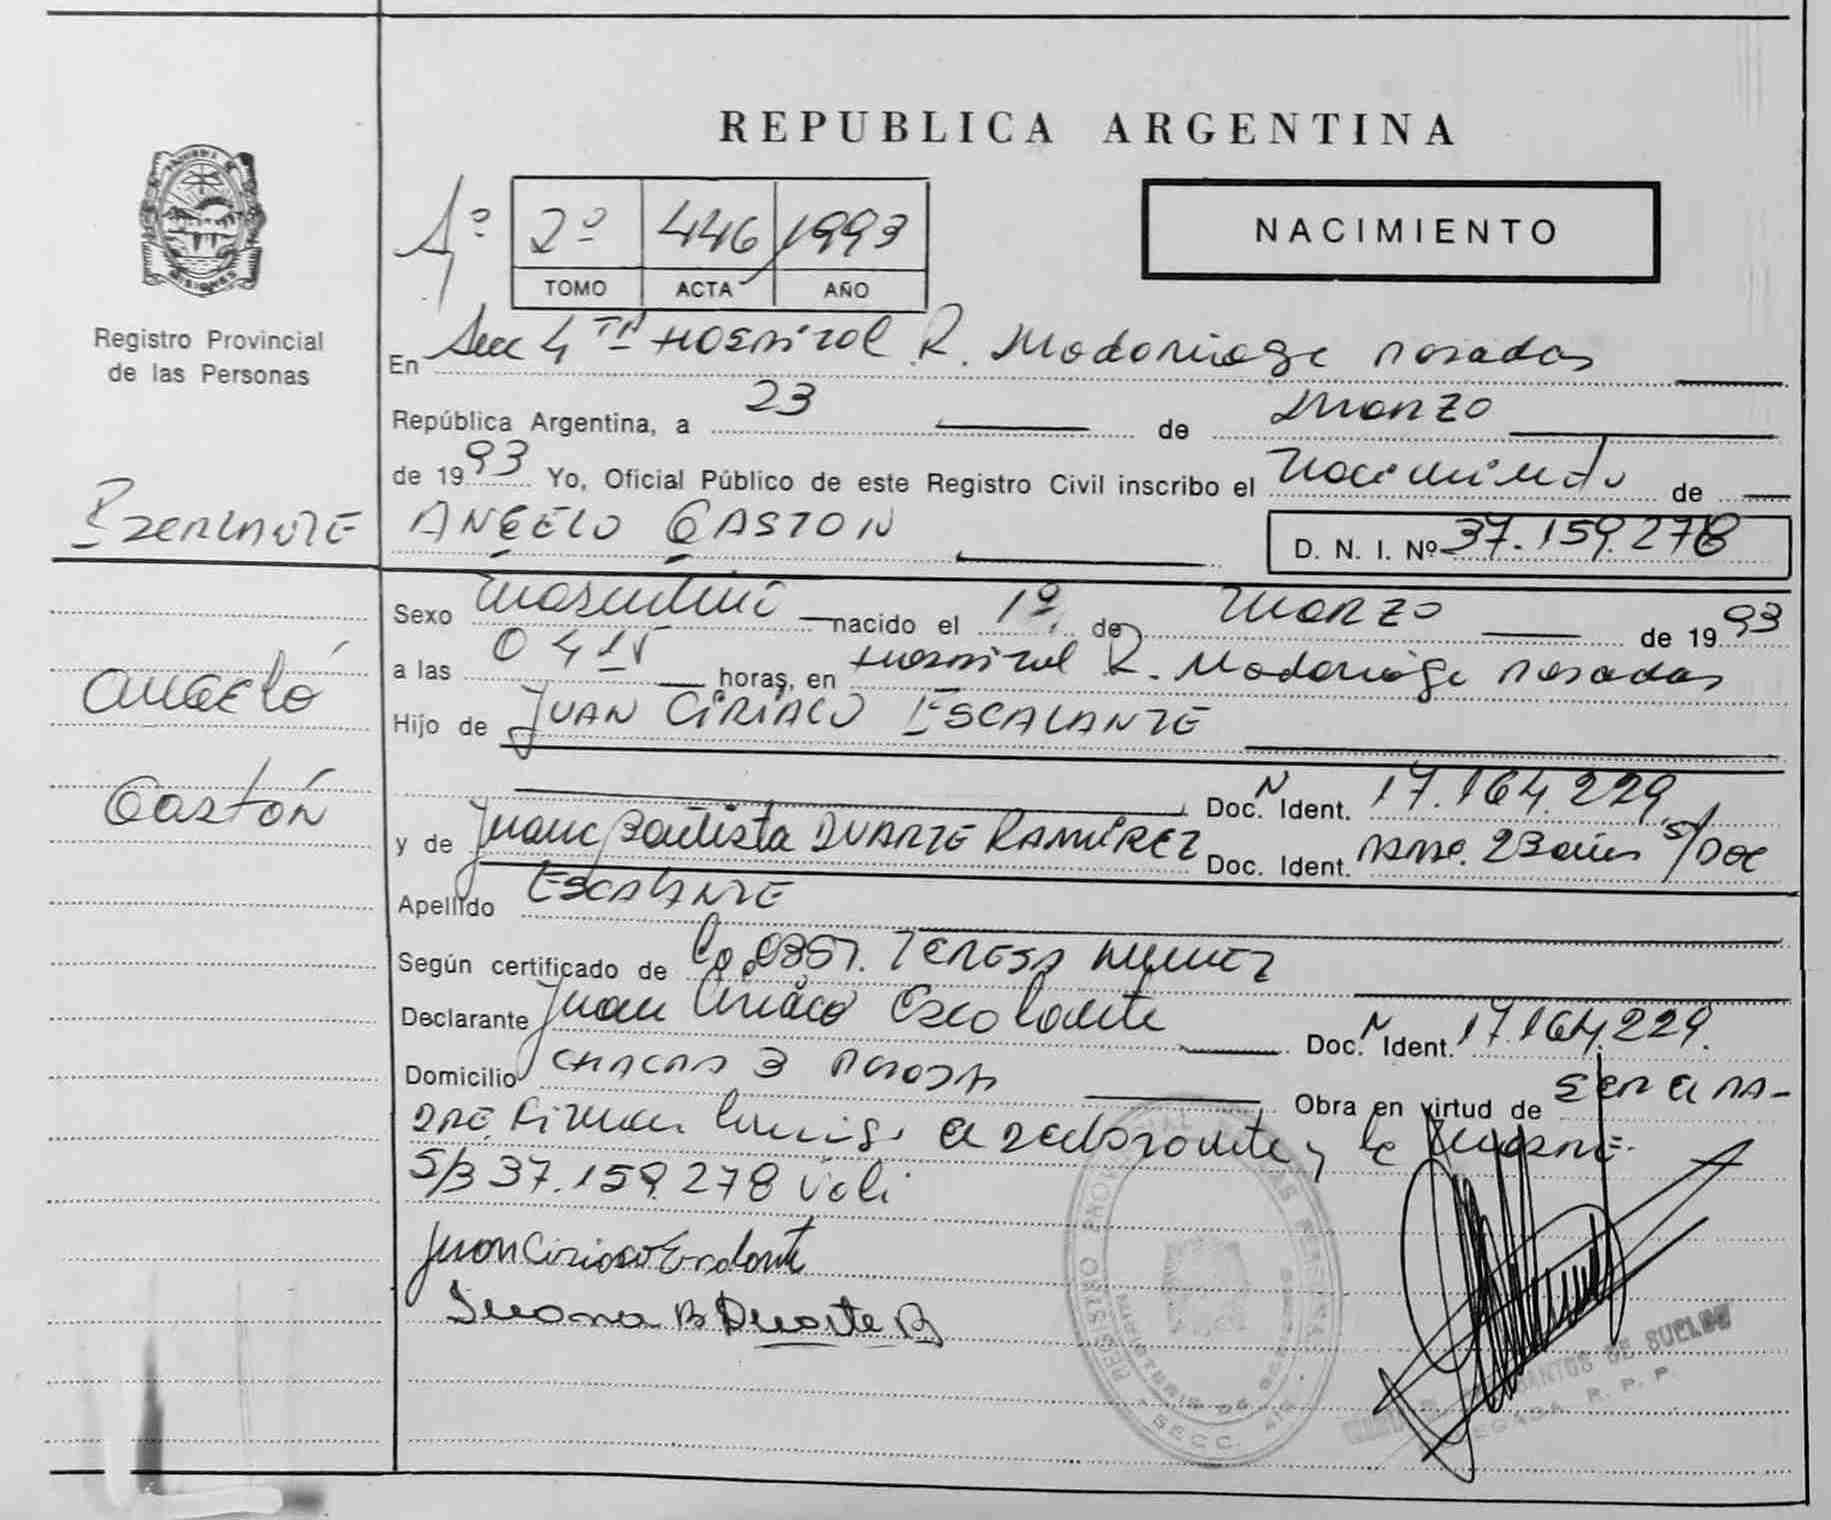 REPUBLICA ARGENTINA
NACIMIENTO
2º 446 1993
TOMO ACTA AÑO
Registro Provincial
de las Personas
En Secc 4ta Hospital R. Madariaga Posadas
República Argentina, a 23 de Marzo
de 1993 Yo, Oficial Público de este Registro Civil inscribo el Nacimiento de
ESCALANTE
ANGELO GASTON
D. N. I. Nº 37.159.278
Sexo Masculino nacido el 1º de Marzo de 1993
a las 04 15 horas, en Hospital R. Madariaga Posadas
Angeló
Hijo de JUAN CIRIACO ESCALANTE
Gastón
Doc. N Ident. 17.164.229
y de Juana Bautista DUARTE RAMIREZ Doc. Ident. 23 años s/Doc
Apellido ESCALANTE
Según certificado de TERESA
Declarante Juan Ciriaco Escalante Doc. N Ident. 17.164.229.
Domicilio CHACRA 3 Obra en virtud de SER el PA-
DRE. Firman el declarante y la Madre.
S/B 37.159.278 Vali
Juan Ciriaco Escalante
Juana B Duarte R
REGISTRO PROVINCIAL DE LAS PERSONAS
MINISTERIO DE GOBIERNO
SECC. 4ta
SANTOS DE SUELDO
R. P. P.